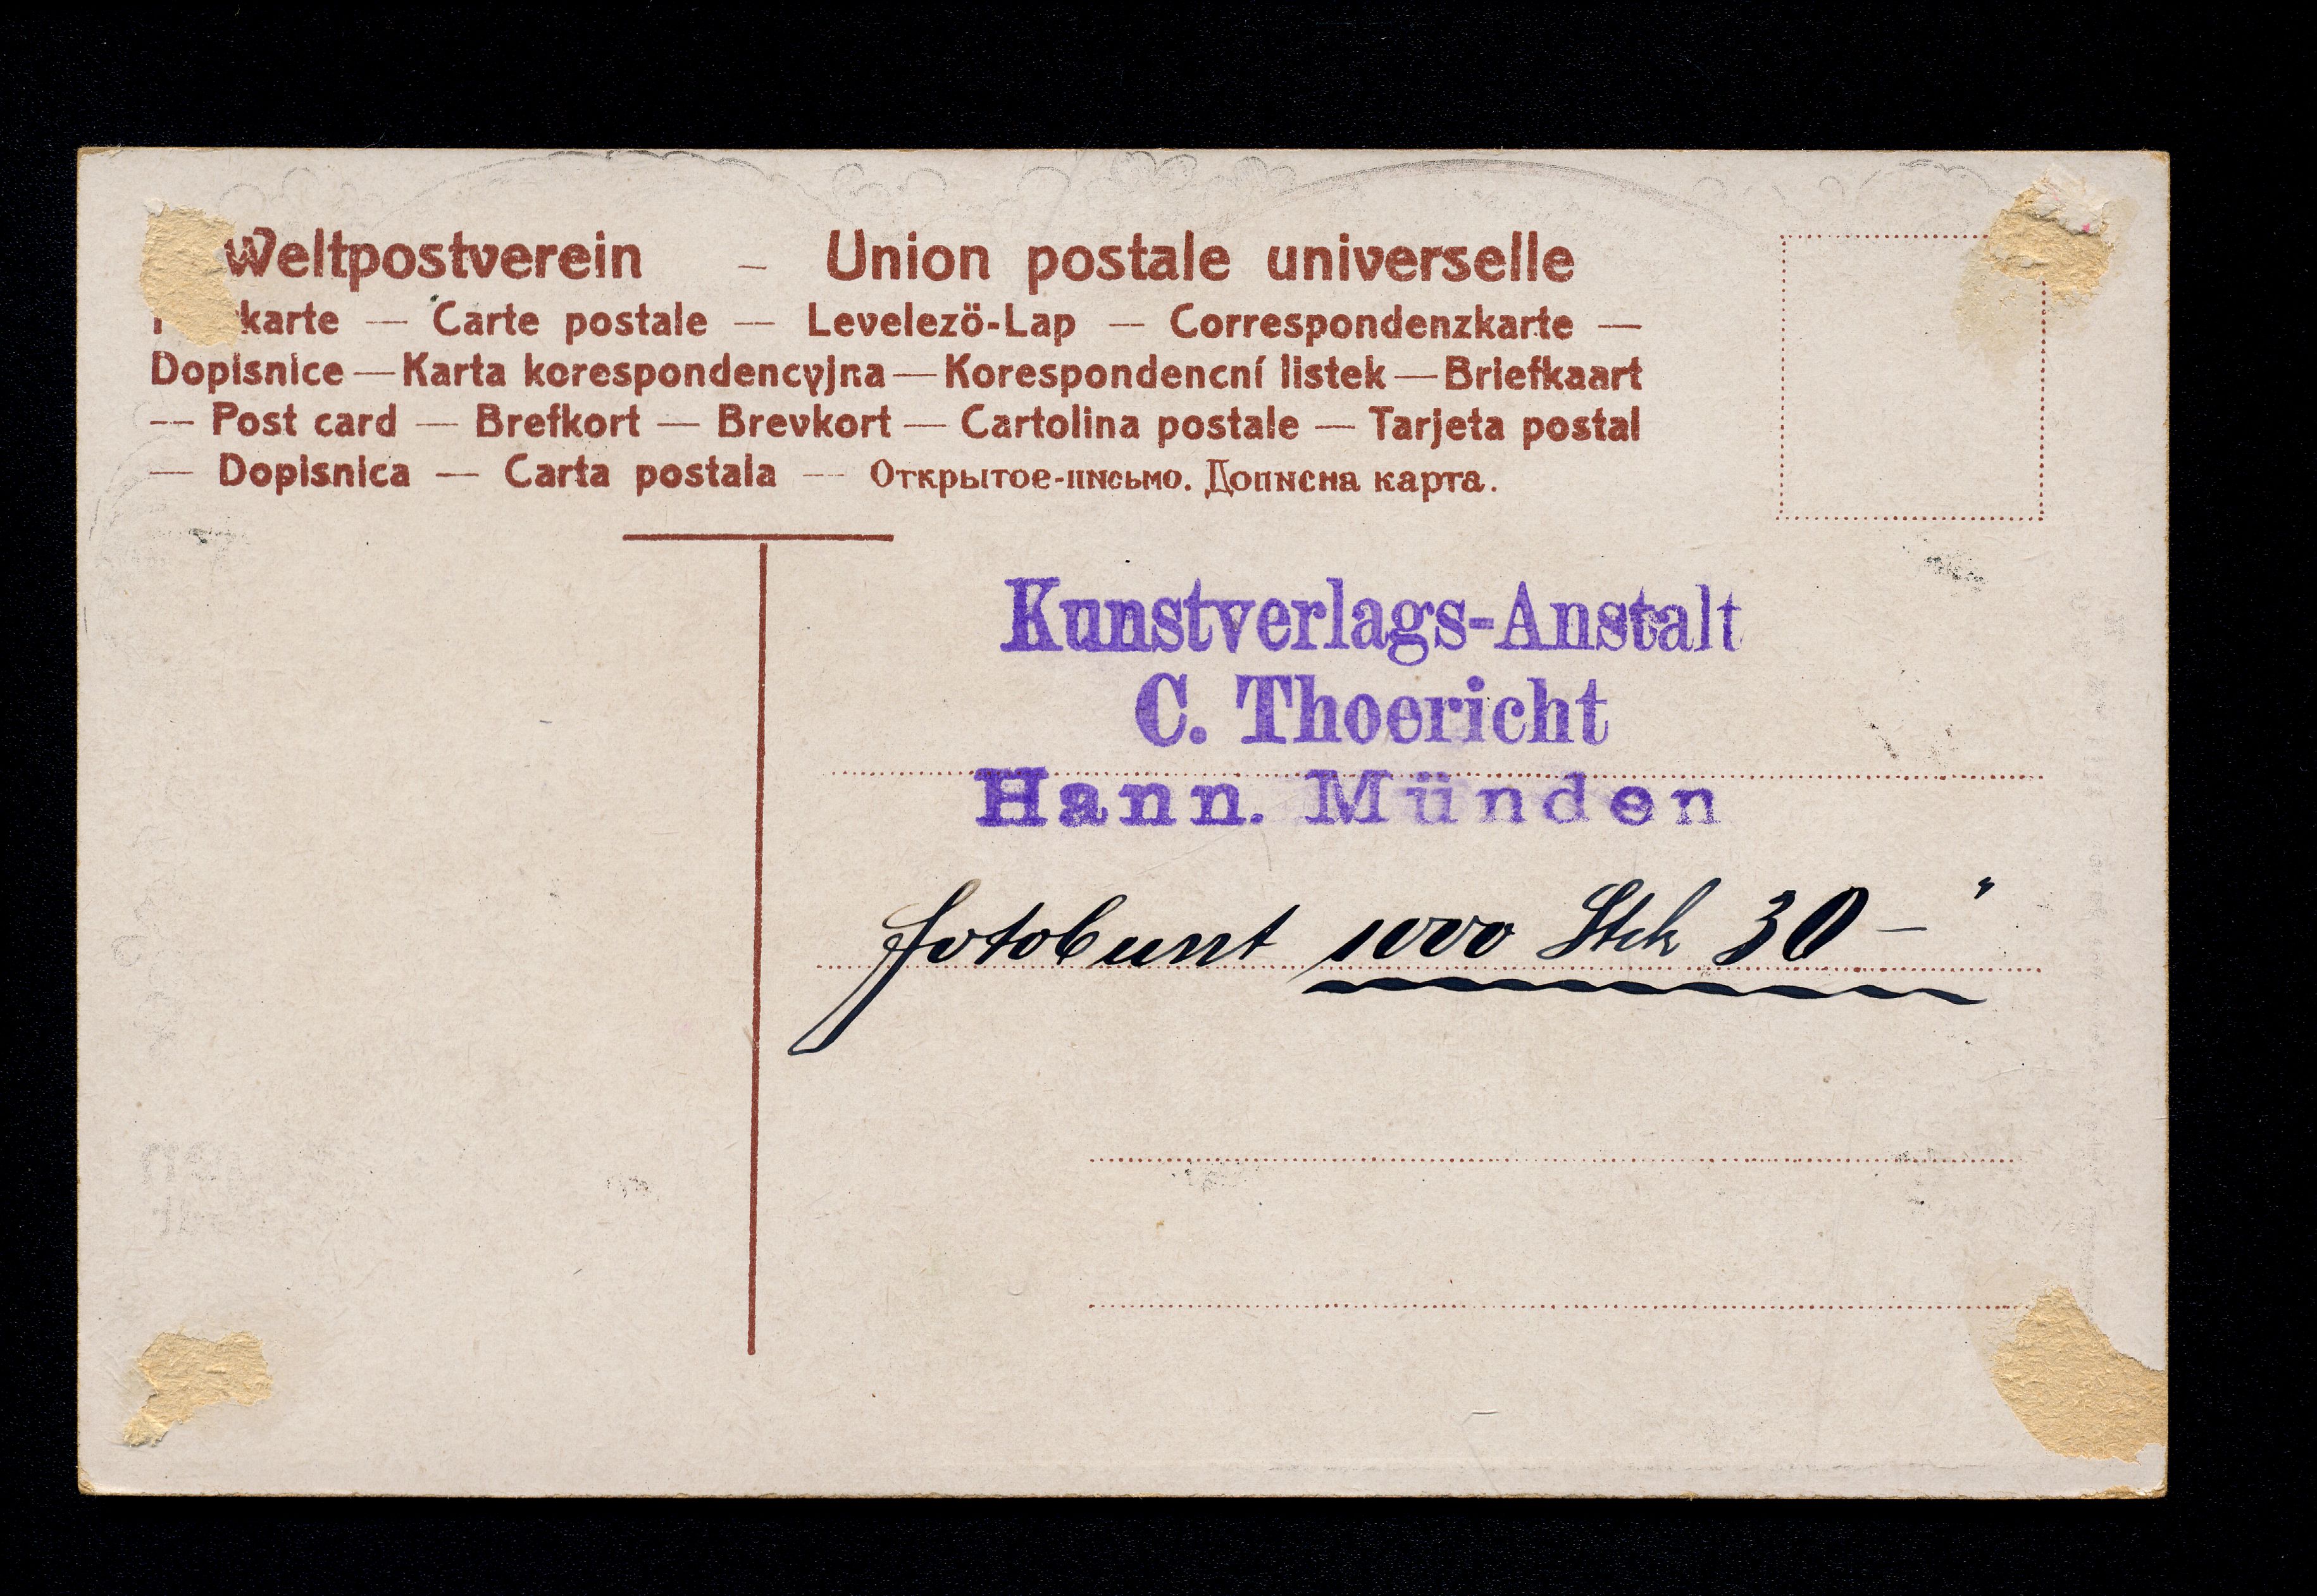 Weltpostverein – Union postale universelle
karte — Carte postale — Levelezö-Lap — Correspondenzkarte —
Dopisnice — Karta korespondencyjna — Korespondencní listek — Briefkaart
— Post card — Brefkort — Brevkort — Cartolina postale — Tarjeta postal
— Dopisnica — Carta postala — Открытое-письмо. Дописна карта.
Kunstverlags-Anstalt
C. Thoericht
Hann. Münden
fotobunt 1000 Stck 30 – "